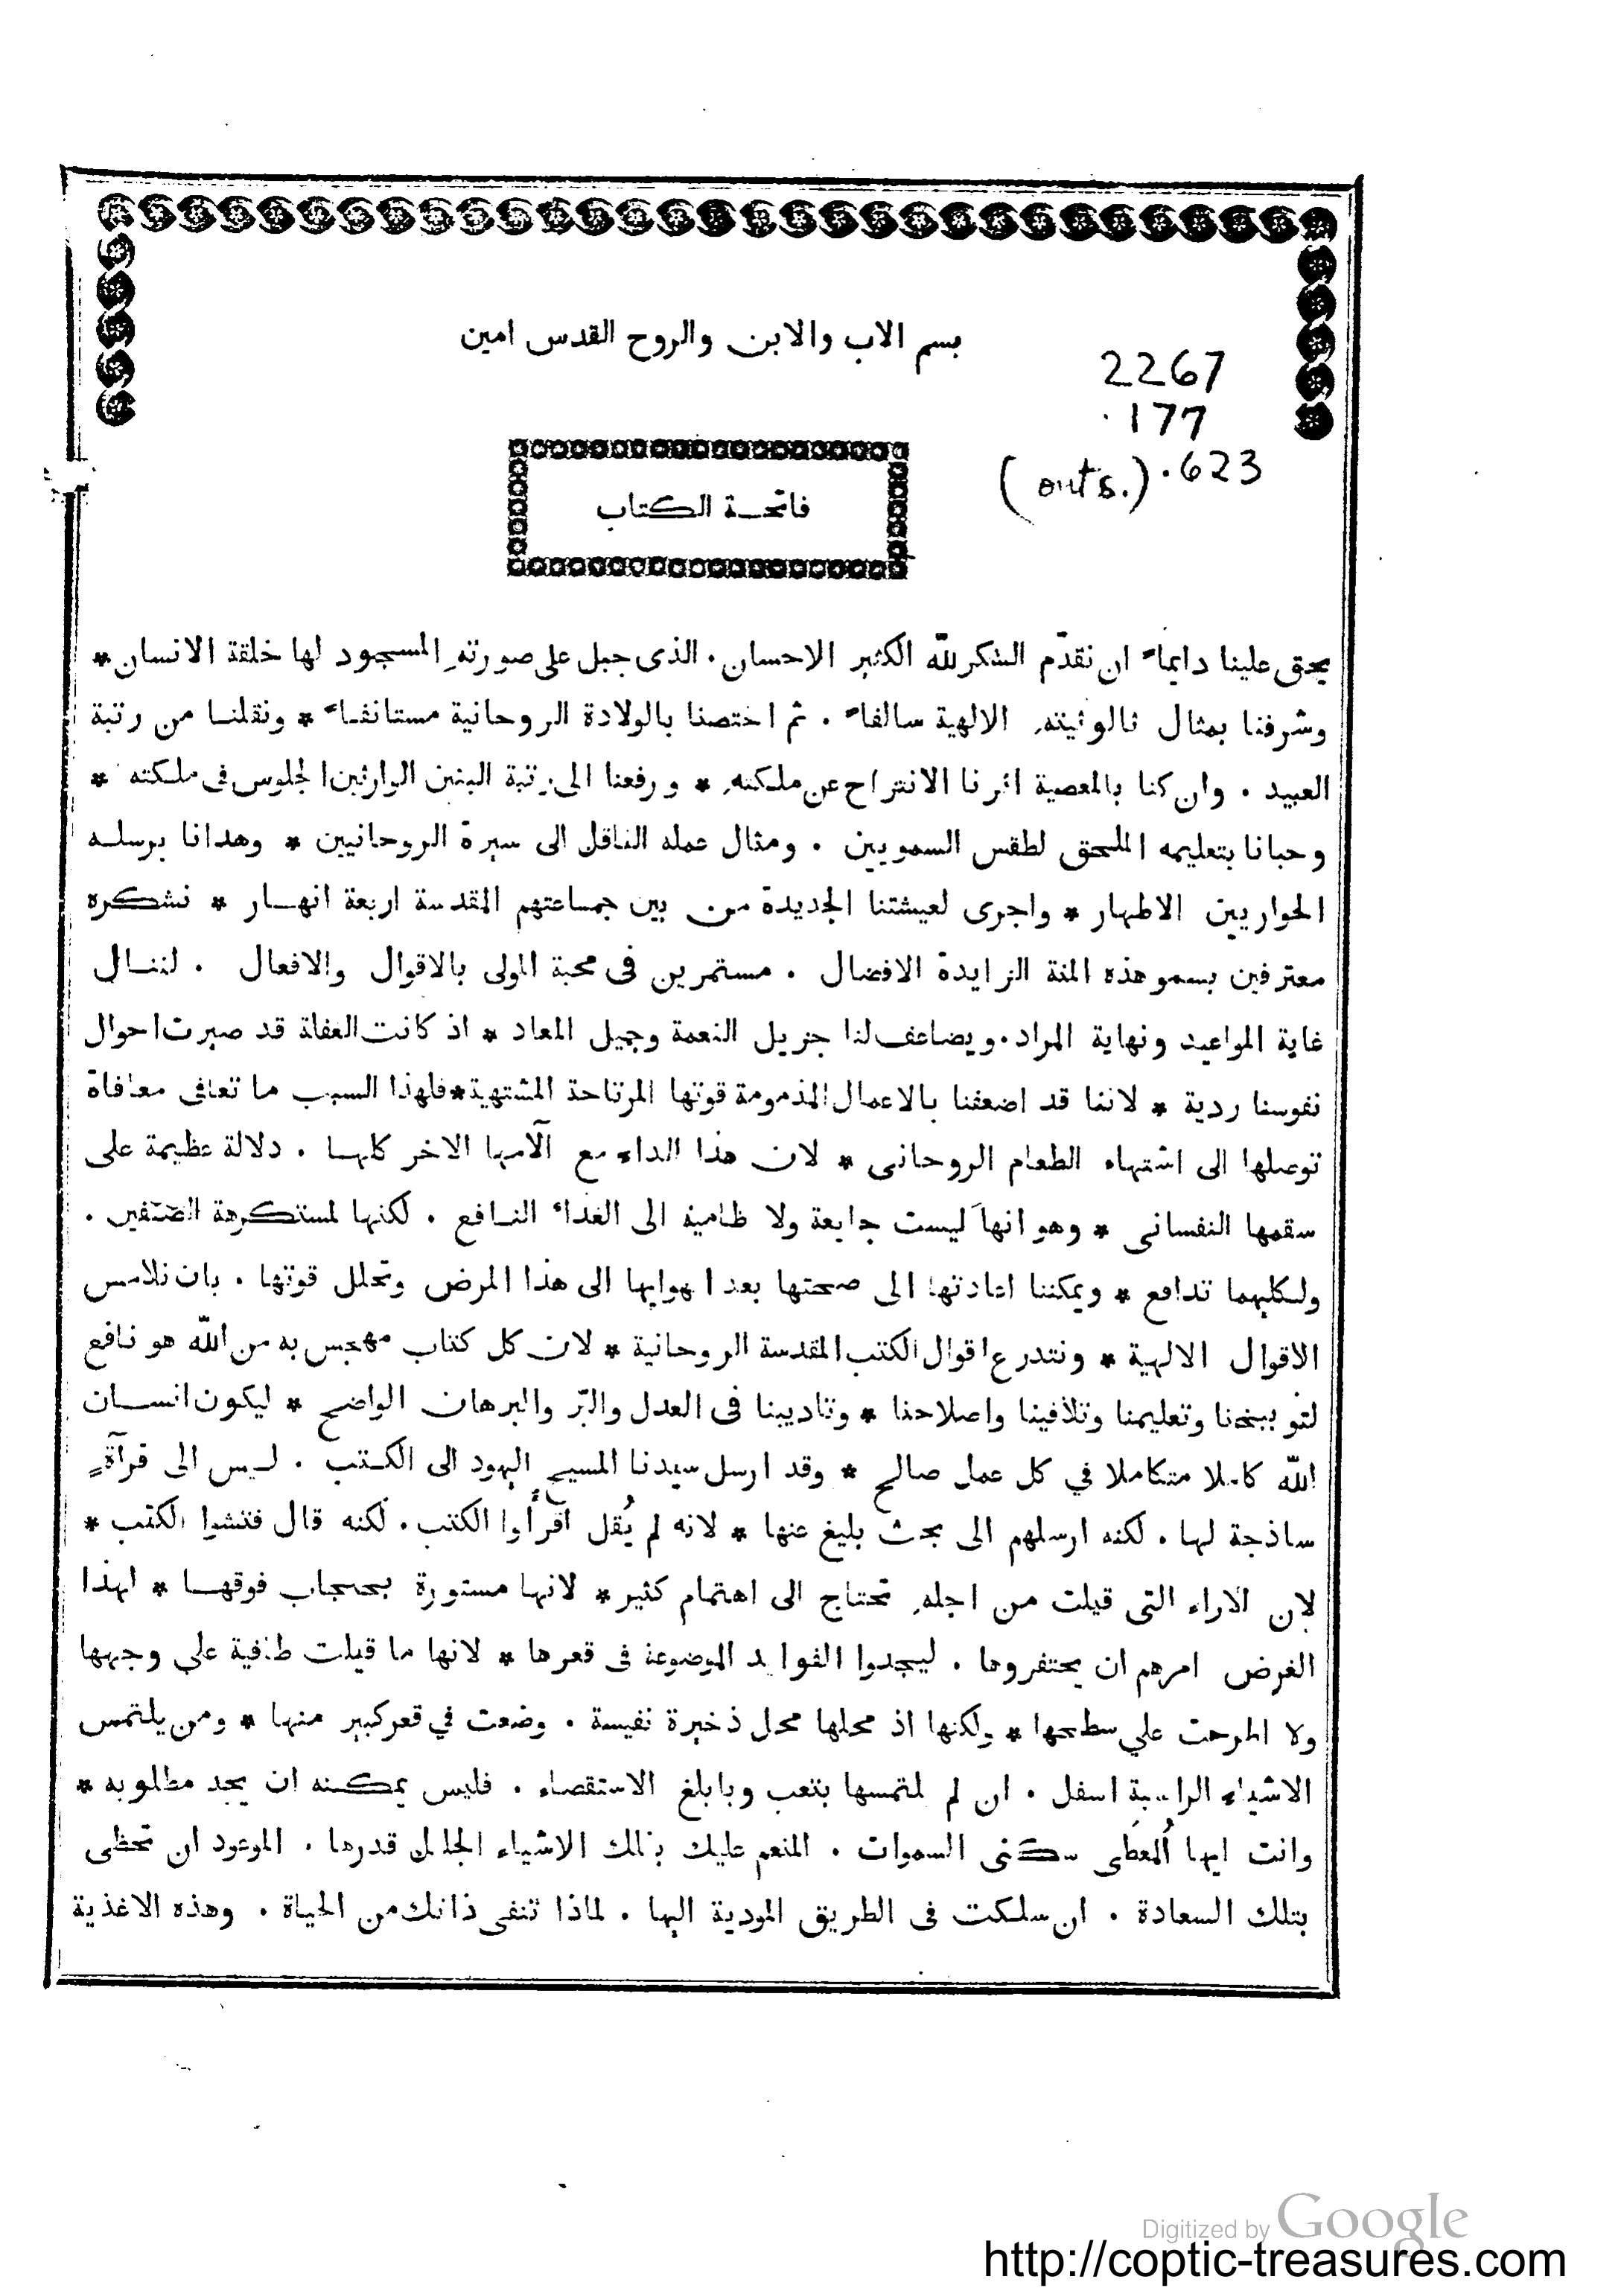 بسم الاب والابن والروح القدس امين
2267
.177
(outs.) .623
فاتحة الكتاب
يحق علينا دايماً ان نقدّم الشكر للّه الكثير الاحسان . الذى جبل على صورته المسجود لها خلقة الانسان *
وشرفنا بمثال ثالوثيته الالهية سالفاً . ثم اختصنا بالولادة الروحانية مستانفاً * ونقلنا من رتبة
العبيد . وان كنا بالمعصية اثرنا الانتزاح عن ملكته * ورفعنا الى رتبة البنين الوارثين الجلوس فى ملكته *
وحبانا بتعليمه الملحق لطقس السمويين . ومثال عمله الناقل الى سيرة الروحانيين * وهدانا برسله
الحواريين الاطهار * واجرى لعيشتنا الجديدة من بين جماعتهم المقدسة اربعة انهار * نشكره
معترفين بسمو هذه المنة الزايدة الافضال . مستمرين فى محبة المولى بالاقوال والافعال . لننال
غاية المواعيد ونهاية المراد . ويضاعف لنا جزيل النعمة وجميل المعاد * اذ كانت الغفلة قد صيرت احوال
نفوسنا ردية * لاننا قد اضعفنا بالاعمال المذمومة قوتها المرتاحة المشتهية * فلهذا السبب ما تعافى معافاة
توصلها الى اشتهاء الطعام الروحانى * لان هذا الداء مع آلامها الاخر كلها . دلالة عظيمة على
سقمها النفسانى * وهو انها ليست جايعة ولا ظامية الى الغذاء النافع . لكنها لمستكرهة الصنفين .
ولكليهما تدافع * ويمكننا اعادتها الى صحتها بعد اهوايها الى هذا المرض وتحلل قوتها . بان نلامس
الاقوال الالهية * ونتدرع اقوال الكتب المقدسة الروحانية * لان كل كتاب مهجس به من اللّه هو نافع
لتوبيخنا وتعليمنا وتلافينا واصلاحنا * وتاديبنا فى العدل والبّر والبرهان الواضح * ليكون انسان
اللّه كاملا متكاملا في كل عمل صالح * وقد ارسل سيدنا المسيح اليهود الى الكتب . ليس الى قرآةٍ
ساذجة لها . لكنه ارسلهم الى بحث بليغ عنها * لانه لم يُقل اقرأوا الكتب . لكنه قال فتشوا الكتب *
لان الاراء التى قيلت من اجله تحتاج الى اهتمام كثير * لانها مستورة بحجاب فوقها * لهذا
الغرض امرهم ان يحتفروها . ليجدوا الفوايد الموضوعة فى قعرها * لانها ما قيلت طافية على وجهها
ولا اطرحت علي سطحها * ولكنها اذ محلها محل ذخيرة نفيسة . وضعت في قعر كبير منها * ومن يلتمس
الاشياء الراسبة اسفل . ان لم يلتمسها بتعب وبابلغ الاستقصاء . فليس يمكنه ان يجد مطلوبه *
وانت ايها اُلمعطَى سكنى السموات . المنعم عليك بتلك الاشياء الجليل قدرها . الموعود ان تحظى
بتلك السعادة . ان سلكت فى الطريق المودية اليها . لماذا تنفى ذاتك من الحياة . وهذه الاغذية
Digitized by Google
http://coptic-treasures.com